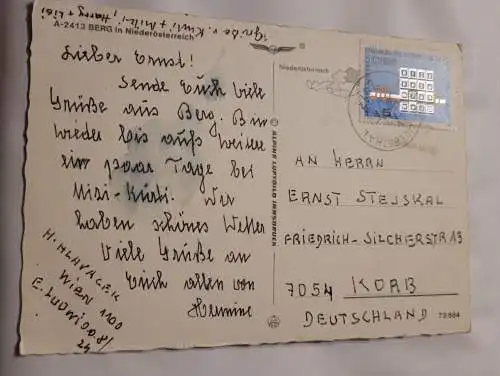 Grüße v. Kurti + Mitzi, Harry + Lisi
A-2413 BERG in Niederösterreich
Lieber Ernst!
Sende Euch viele
Grüße aus Berg. Bin
wieder bis auf weitere
ein paar Tage bei
Mizi-Kurti. Wir
haben schönes Wetter
Viele Grüße an
Euch allen von
Hermine
H. HLAVACEK
WIEN 1100
Niederösterreich
ALPINE LUFTBILD INNSBRUCK
AN HERRN
ERNST STEJSKAL
FRIEDRICH-SILCHERSTR 13
7054 KORB
DEUTSCHLAND